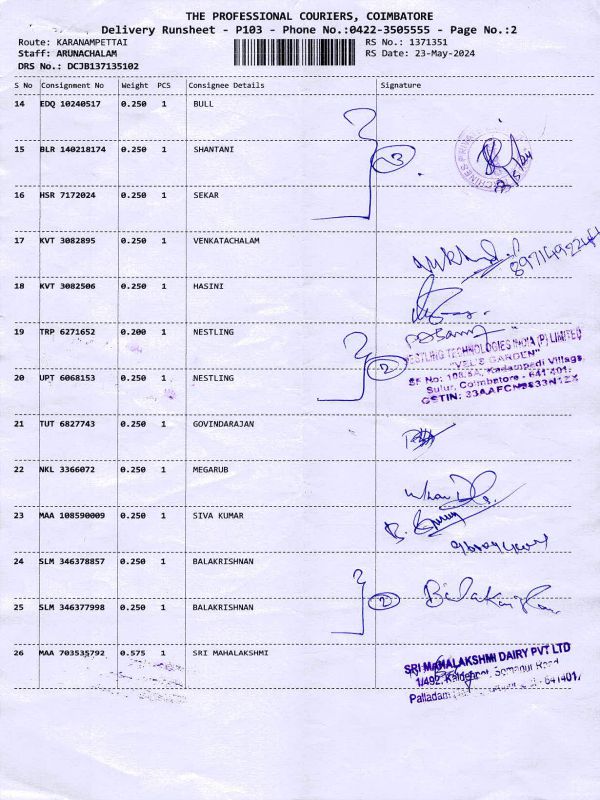 THE PROFESSIONAL COURIERS, COIMBATORE
Delivery Runsheet - P103 - Phone No.:0422-3505555 - Page No.:2
Route: KARANAMPETTAI RS No.: 1371351
Staff: ARUNACHALAM RS Date: 23-May-2024
DRS No.: DCJB137135102
S No Consignment No Weight PCS Consignee Details Signature
14 EDQ 10240517 0.250 1 BULL
15 BLR 140218174 0.250 1 SHANTANI
3
16 HSR 7172024 0.250 1 SEKAR
17 KVT 3082895 0.250 1 VENKATACHALAM
18 KVT 3082506 0.250 1 HASINI
19 TRP 6271652 0.200 1 NESTLING
NESTLING TECHNOLOGIES INDIA (P) LIMITED
"VEL'S GARDEN"
2
20 UPT 6068153 0.250 1 NESTLING
SF No: Kadampadi Village,
Sulur, Coimbatore - 641 401.
GSTIN:
21 TUT 6827743 0.250 1 GOVINDARAJAN
22 NKL 3366072 0.250 1 MEGARUB
23 MAA 108590009 0.250 1 SIVA KUMAR
24 SLM 346378857 0.250 1 BALAKRISHNAN
2
25 SLM 346377998 0.250 1 BALAKRISHNAN
26 MAA 703535792 0.575 1 SRI MAHALAKSHMI
SRI MAHALAKSHMI DAIRY PVT LTD
1/492, Somanur Road
Palladam - 641401.